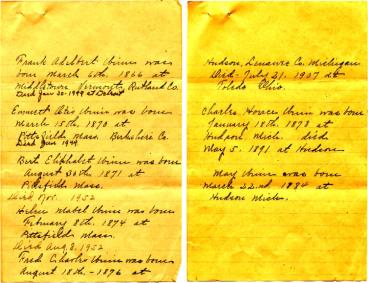 Frank Adelbert Unin was
born March 6th. 1866 at
Middletown, Vermont, Rutland Co.
Died Jan 30-1949 at Detroit
Emmett Unin was born
March 15th. 1870 at
Pittsfield, Mass. Berkshire Co.
Died Jan 1949
Bert Eliphalet Unin was born
August 30th 1871 at
Pittsfield Mass.
Died Nov. 1952
Mabel Unin was born
February 8th. 1874 at
Pittsfield Mass.
Died Aug. 8, 1952
Fred Charles Unin was born
August 18th. - 1876 at
Hudson, Lenawee Co. Michigan
Died - July 31. 1907 at
Toledo Ohio.
Charles Horace Unin was born
January 18th 1878 at
Hudson Mich. died
May 5. 1891 at Hudson
May Unin was born
March 22nd 1884 at
Hudson Mich.